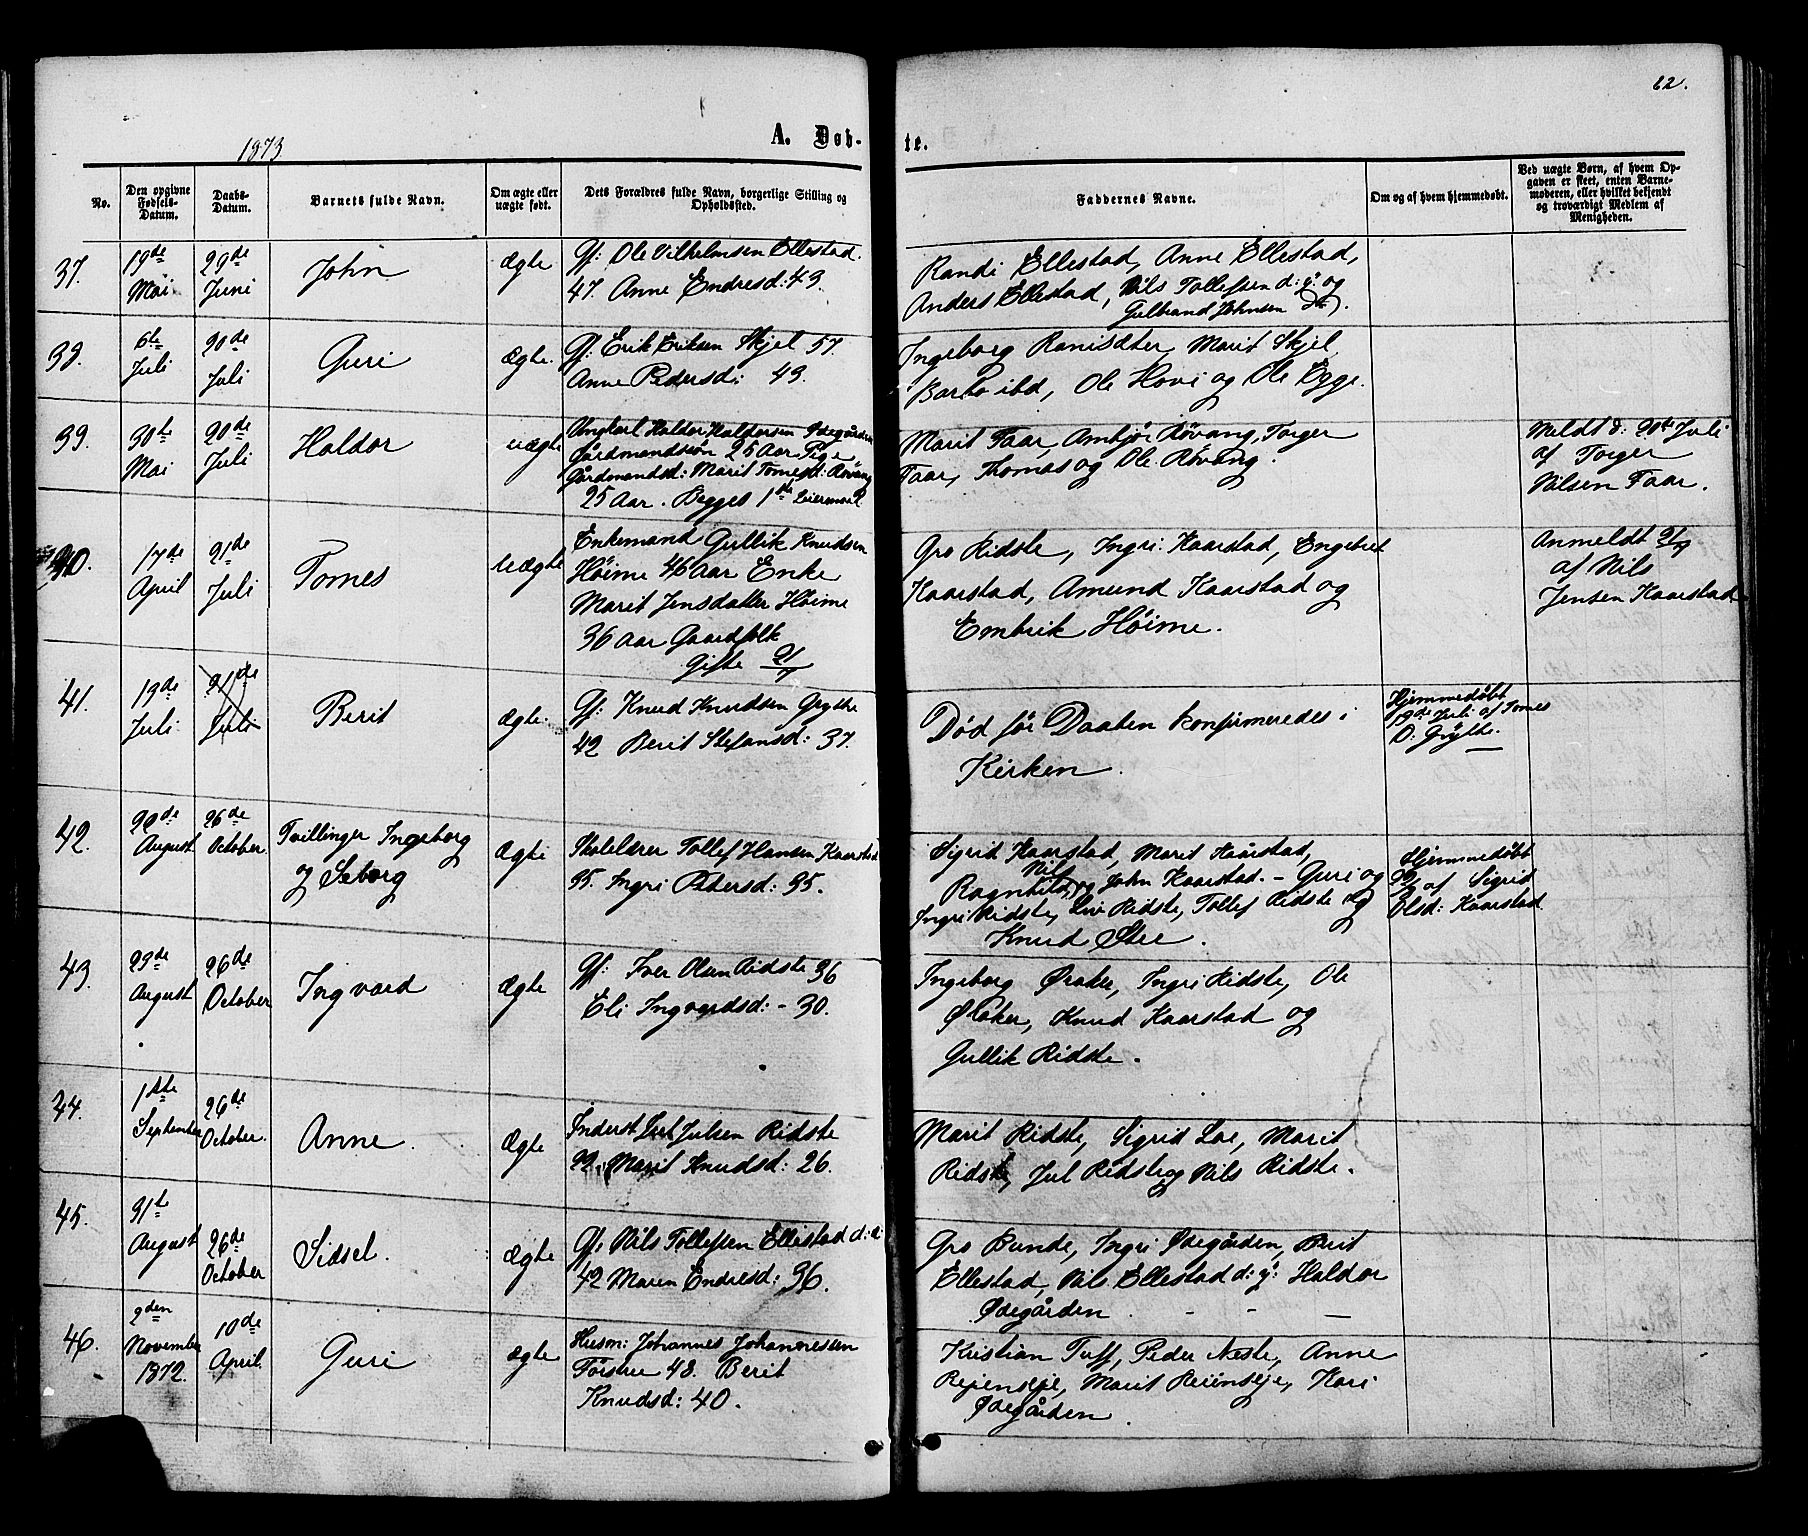 62.
1873
A. Døb-
te.
No.
Den opgivne Fødsels-Datum.
Daabs-Datum.
Barnets fulde Navn.
Om ægte eller uægte født.
Dets Forældres fulde Navn, borgerlige Stilling og Opholdssted.
Faddernes Navne.
Om og af hvem hjemmedøbt.
Ved uægte Børn, af hvem Op-
gaven er skeet, enten Barne-
moderen, eller hvilket bekjendt
og troværdigt Medlem af
Menigheden.
37.
19de
Mai
29de
Juni
John
Ægte
Gf: Ole Vilhelmsen Ellestad.
47. Anne Endresd: 43.
Randi Ellestad, Anne Ellestad,
Anders Ellestad, Nils Tollefsen d: y: og
Gulbrand Johnsen
38.
6te
Juli
20de
Juli
Guri
Ægte
Gf: Erik Eriksen Skjel 57.
Anne Pedersd: 43.
Ingeborg Ranisdter, Marit Skjel
Barbo ibd, Ole Hovi og Ole Egge.
39.
30te
Mai
20de
Juli
Haldor
uægte
Ungkarl Haldor Haldorsen Ødegården
Gårdmandssøn 25 Aar. Pige
Gårdmandsd: Marit Tomesd: Røvang
25 Aar. Begges 1ste Leiermaal
Marit Faar, Ambjør Røvang, Torger
Faar, Thomas og Ole Røvang.
Meldt d: 20de Juli
af Torger
Nilsen Faar.
40.
17de
April
21de
Juli
Tomes
Uægte
Enkemand Gullik Knudsen
Høime 46 Aar Enke
Marit Jensdatter Høime
36 Aar Gaardfolk
Gifte 21/7
Gro Ridste, Ingri Kaarstad, Engebret
Kaarstad, Amund Kaarstad og
Embrik Høime.
Anmeldt 21/7
af Nils
Jensen Kaarstad
41.
19de
Juli
21de
Juli
Berit
Ægte.
Gf: Knud Knudsen Grytte
42 Berit Stefansd: 37.
Død før Daaben konfirmeredes i
Kirken.
Hjemmedøbt
19de Juli af Tomes
O. Grytte.
42.
22de
August
26de
October
Tvillinger Ingeborg
og Seborg
Ægte
Skolelærer Tollef Hansen Kaarstad
35. Ingri Pedersd: 35.
Sigrid Kaarstad, Marit Kaarstad,
Nils
Ragnhild, og John Kaarstad. - Guri og
Ingri Ridste, Liv Ridste, Tollef Ridste og
Knud Stee.
Hjemmedøbt
af Sigrid
Olsd: Kaarstad
43.
23de
August
26de
October
Ingvard
Ægte
Gf: Iver Olsen Ridste 36
Eli Ingvardsd: - 30.
Ingeborg Øraker, Ingri Ridste, Ole
Øraker, Knud Kaarstad og
Gullik Ridste.
44.
1ste
September
26de
October.
Anne.
Ægte
Inderst Jul Julsen Ridste
Marit Knudsd: 26.
Marit Ridste, Sigrid Loe, Marit
Ridste, Jul Ridste og Nils Ridste.
45.
31te
August
26de
October
Sidsel.
Ægte
Gf: Nils Tollefsen Ellestad d: æ:
42 Maren Endresd: 36.
Gro Bunde, Ingri Ødegården, Berit
Ellestad, Nils Ellestad d: y: Haldor
Ødegården. - - -
46.
2den
November
1872.
10de
April.
Guri
Ægte
Husm: Johannes Johannessen
Tørstue 48. Berit
Knudsd: 40.
Kristian Tuff, Peder Neste, Anne
Reienseje, Marit Reienseje, Kari
Ødegården.